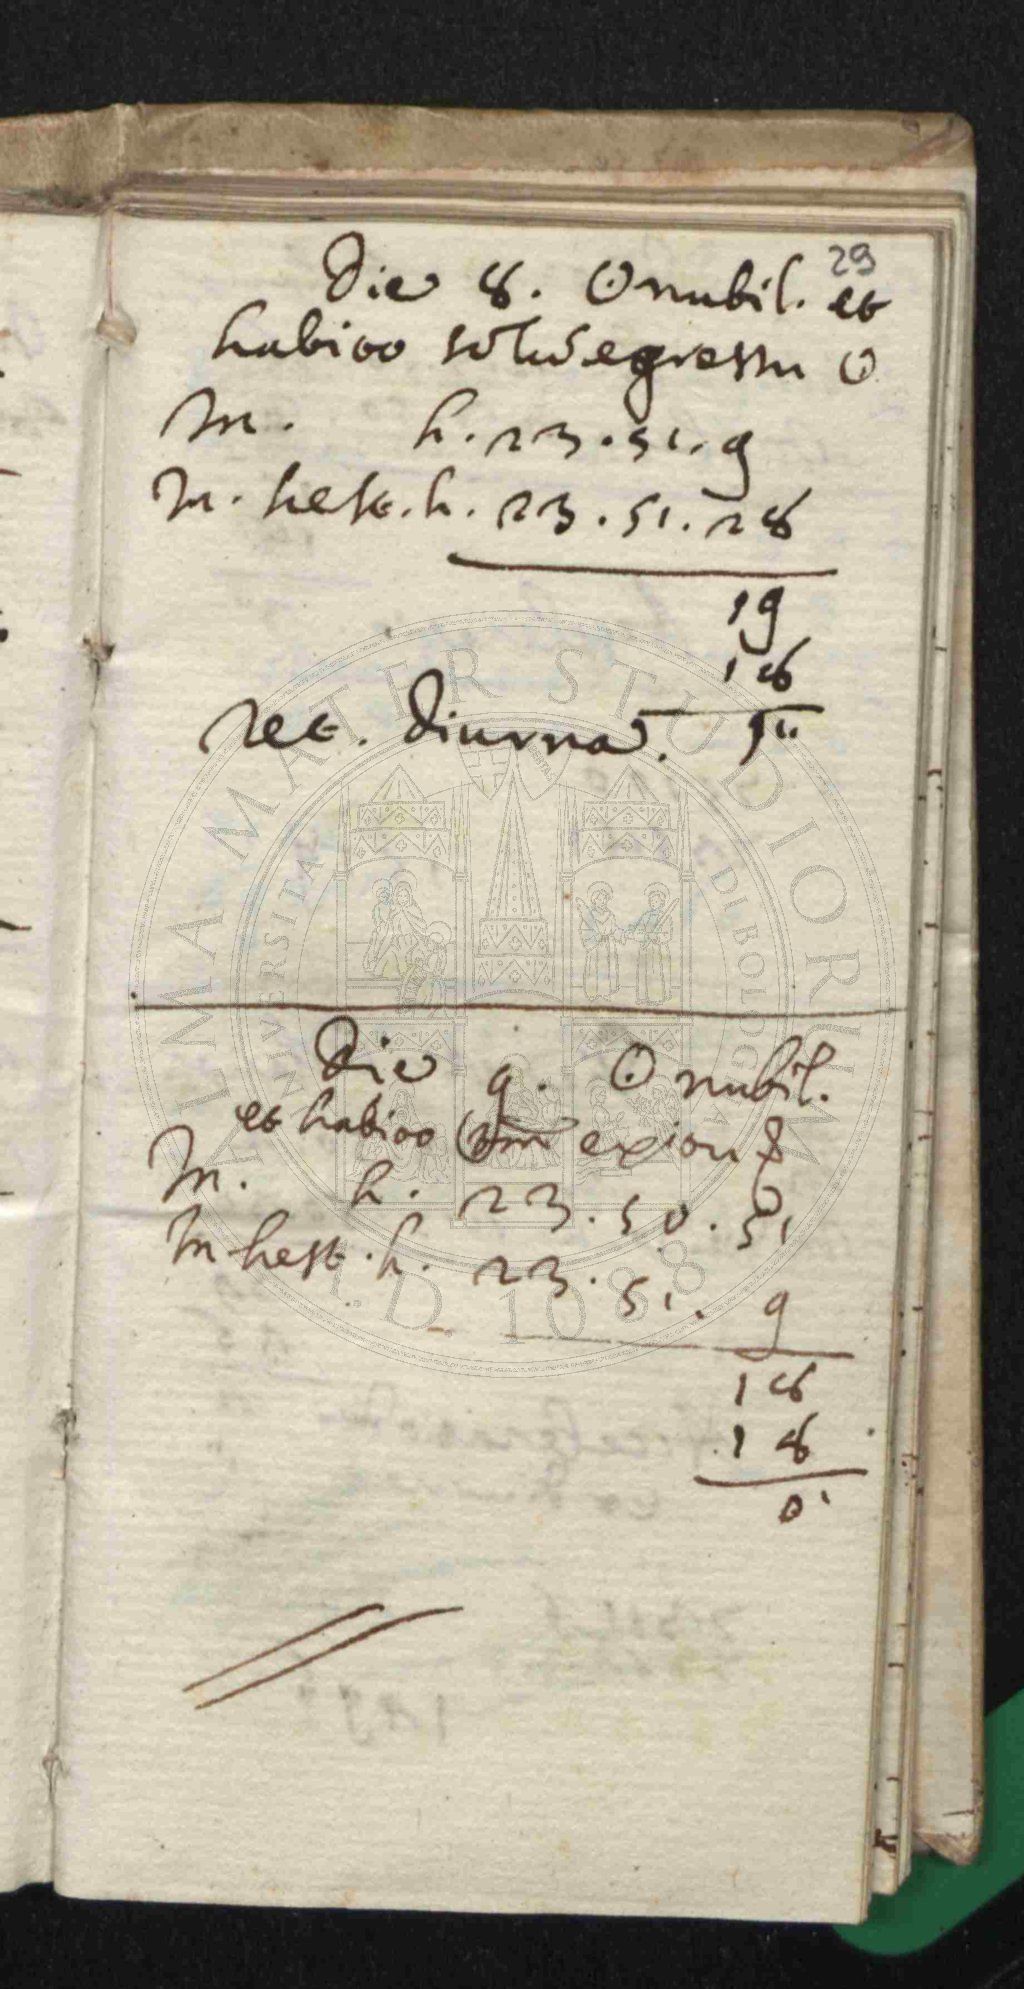 29
Die 8. ☉ nubil. et
habito solū egressu ☉
M. h. 23. 51. 9
M. hest. h. 23. 51. 28
19
18
ret. diurna. 1"
Die 9. ☉ nubil.
et habito exitu
M. h. 23. 50. 51
M hest. h. 23. 51. 9
18
18
0
ALMA MATER STUDIORUM
UNIVERSITÀ DI BOLOGNA
A.D. 1088